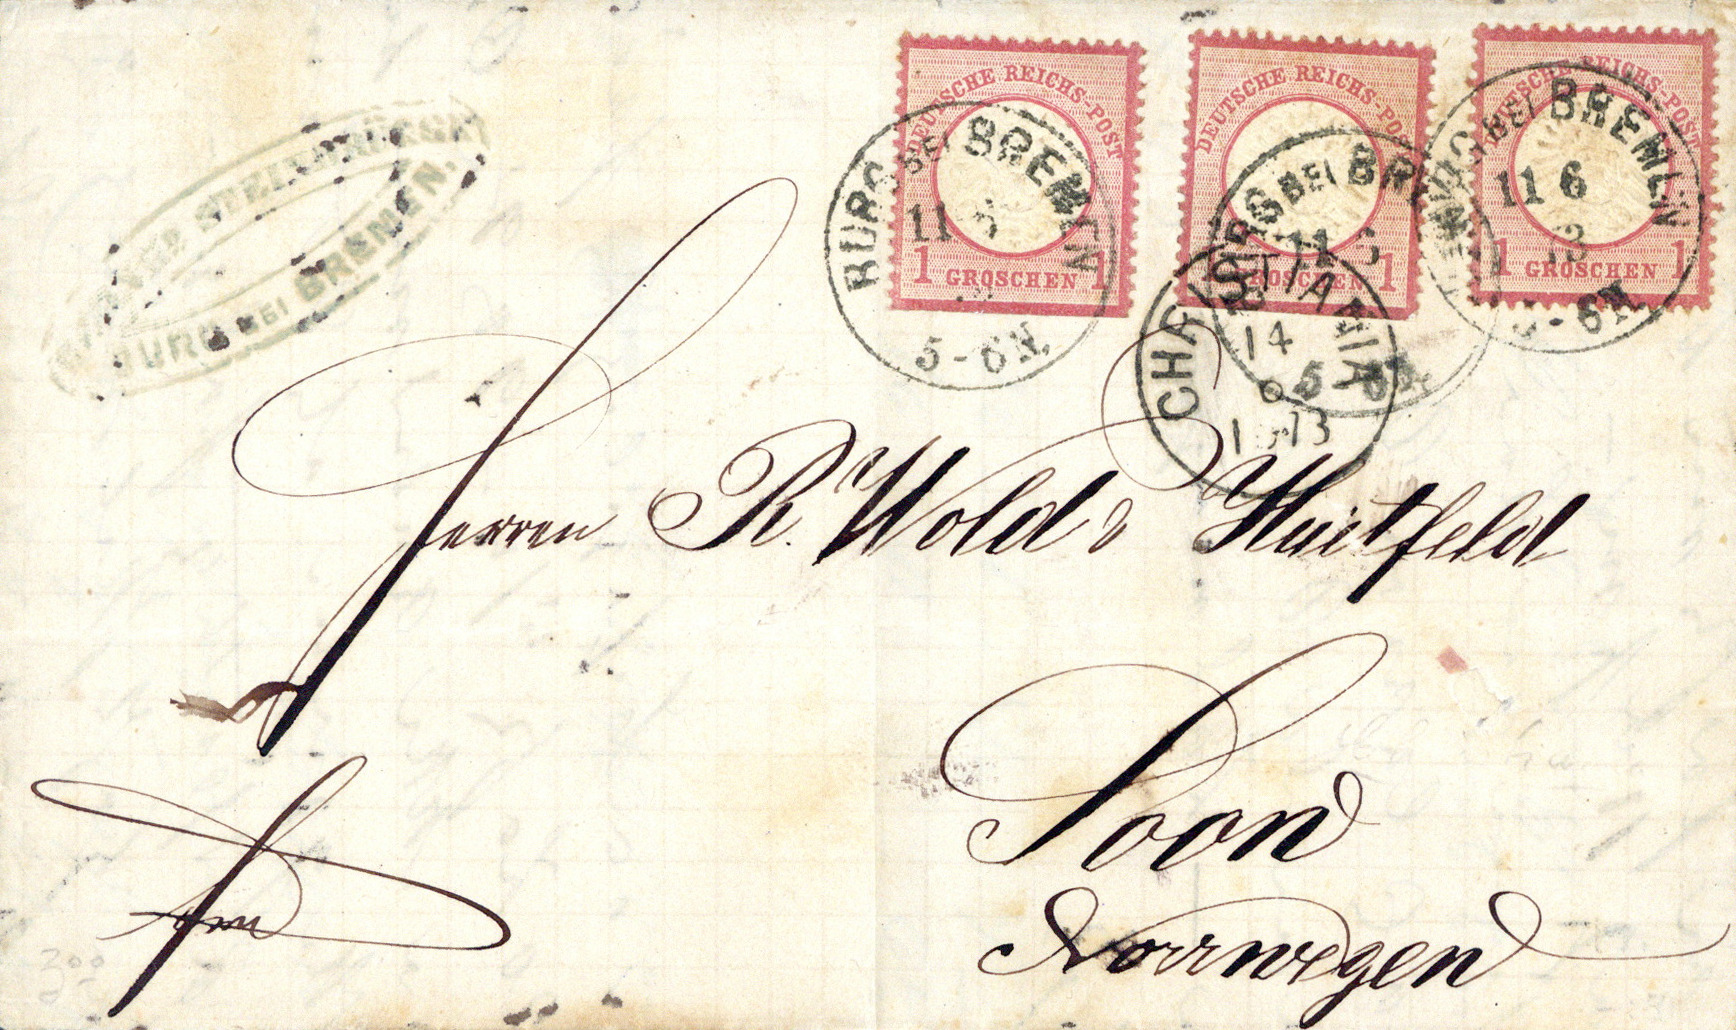 DEUTSCHE REICHS-POST
1 GROSCHEN 1
DEUTSCHE REICHS-POST
GROSCHEN 1
DEUTSCHE REICHS-POST
1 GROSCHEN 1
BURG BEI BREMEN
11 6
5-6N.
BURG BEI BREMEN
11 6
5
BURG BEI BREMEN
11 6
73
5-6N.
CHRISTIANIA
14
6
1873
BURG BEI BREMEN.
Herren R. Wold & Huitfeld
Soon
Norrwegen
300